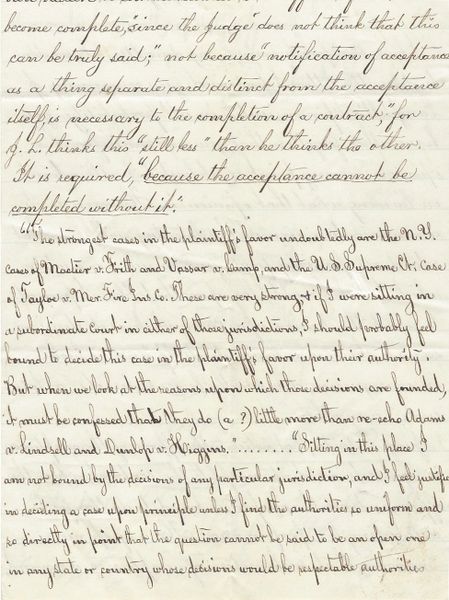 become complete, "since the judge "does not think that this
can be truly said;" not because "notification of acceptance
as a thing separate and distinct from the acceptance
itself, is necessary to the completion of a contract," for
J. L. thinks this "still less" than he thinks the other.
It is required, "because the acceptance cannot be
completed without it."
"The strongest cases in the plaintiff's favor undoubtedly are the N.Y.
cases of Mactier v. Frith and Vassar v. Camp, and the U.S. Supreme Ct. case
of Tayloe v. Mer. Fire Ins. Co. These are very strong, & if I were sitting in
a subordinate court in either of those jurisdictions, I should probably feel
bound to decide this case in the plaintiff's favor upon their authority.
But when we look at the reasons upon which those decisions are founded,
it must be confessed that they do (a ?) little more than re-echo Adams
v. Lindsell and Dunlop v. Higgins." ........ "Sitting in this place I
am not bound by the decisions of any particular jurisdiction, and I feel justified
in deciding a case upon principle unless I find the authorities so uniform and
so directly in point that the question cannot be said to be an open one
in any state or country whose decisions would be respectable authorities